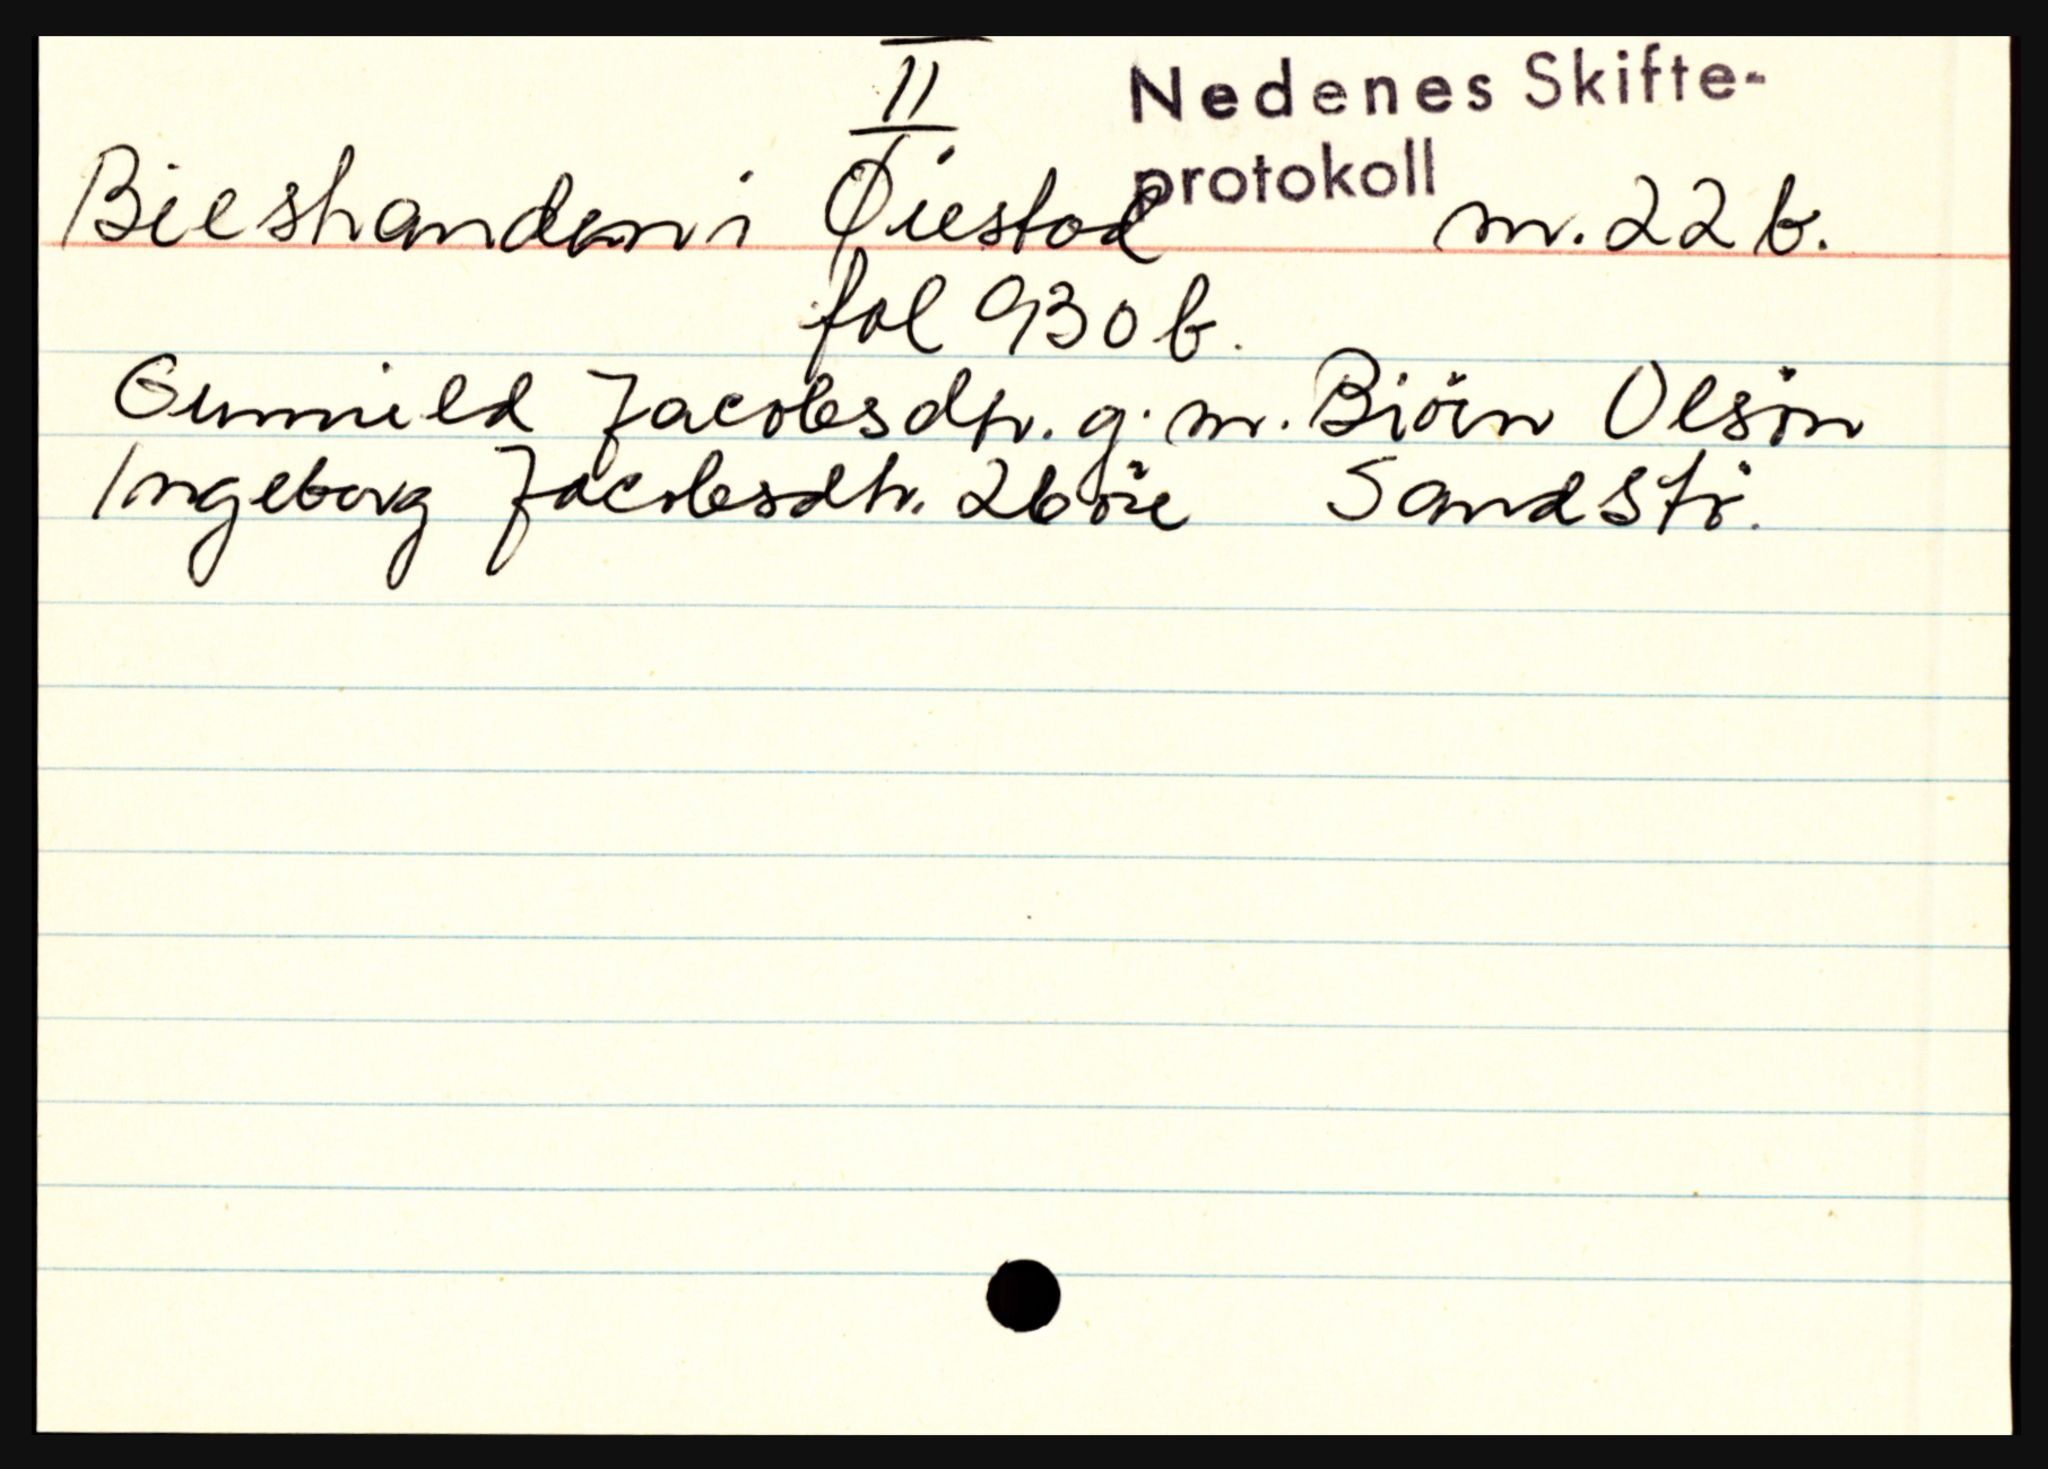 II
Nedenes Skifte-
protokoll
Øiestad nr. 22 b.
fol 930 b.
Gunnild Jacobsdtr. g. m. Biörn Olsön
Ingeborg Jacobsdtr. Sandstö.